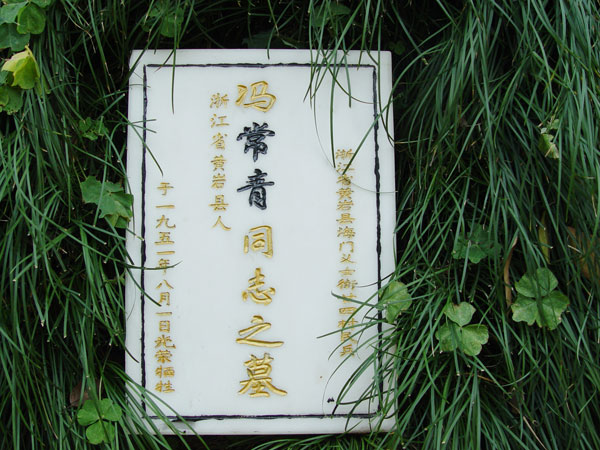 浙江省黄岩县海门
冯常青同志之墓
浙江省黄岩县人
于一九五一年八月一日光荣牺牲